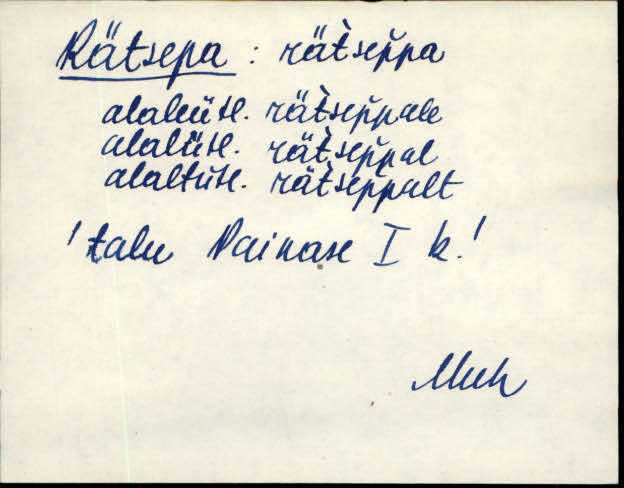 Rätsepa : rät̀sep̆pa
alaleütl. rät̀sep̆pale
alalütl. rät̀sep̆pal
alaltütl. rät̀sep̆palt
'talu Painase I k.'
Muh